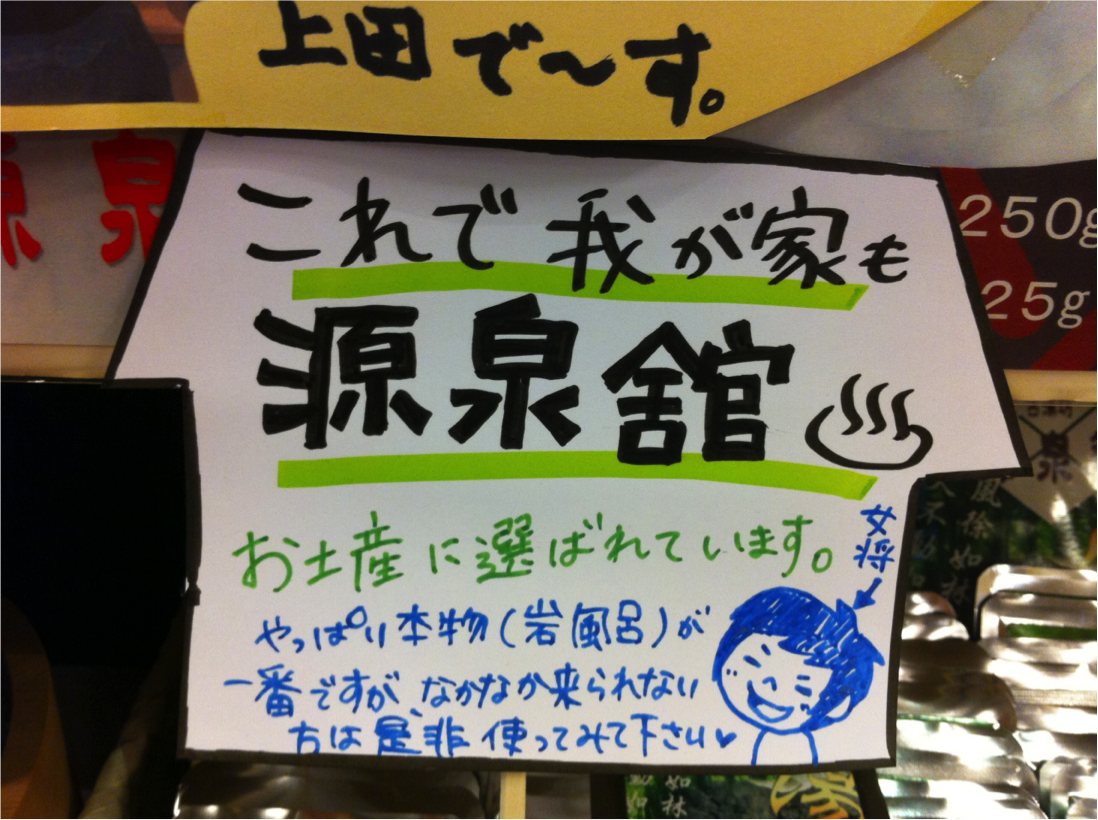 上田で〜す。
源泉
250g
25g
これで我が家も
源泉舘
お土産に選ばれています。
女将
やっぱり本物(岩風呂)が
一番ですが、なかなか来られない
方は是非使ってみて下さい♥
泉
風
徐如林
不動
如林
如